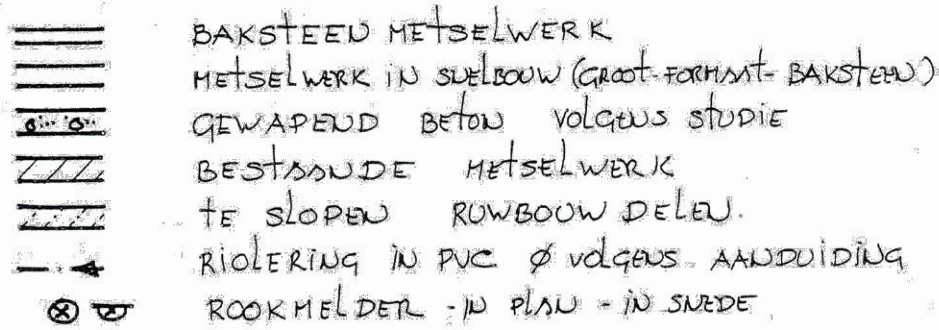 BAKSTEEN METSELWERK
METSELWERK IN SNELBOUW (GROOT-FORMAAT-BAKSTEEN)
GEWAPEND BETON VOLGENS STUDIE
BESTAANDE METSELWERK
TE SLOPEN RUWBOUW DELEN.
RIOLERING IN PVC Ø VOLGENS AANDUIDING
ROOKMELDER - IN PLAN - IN SNEDE